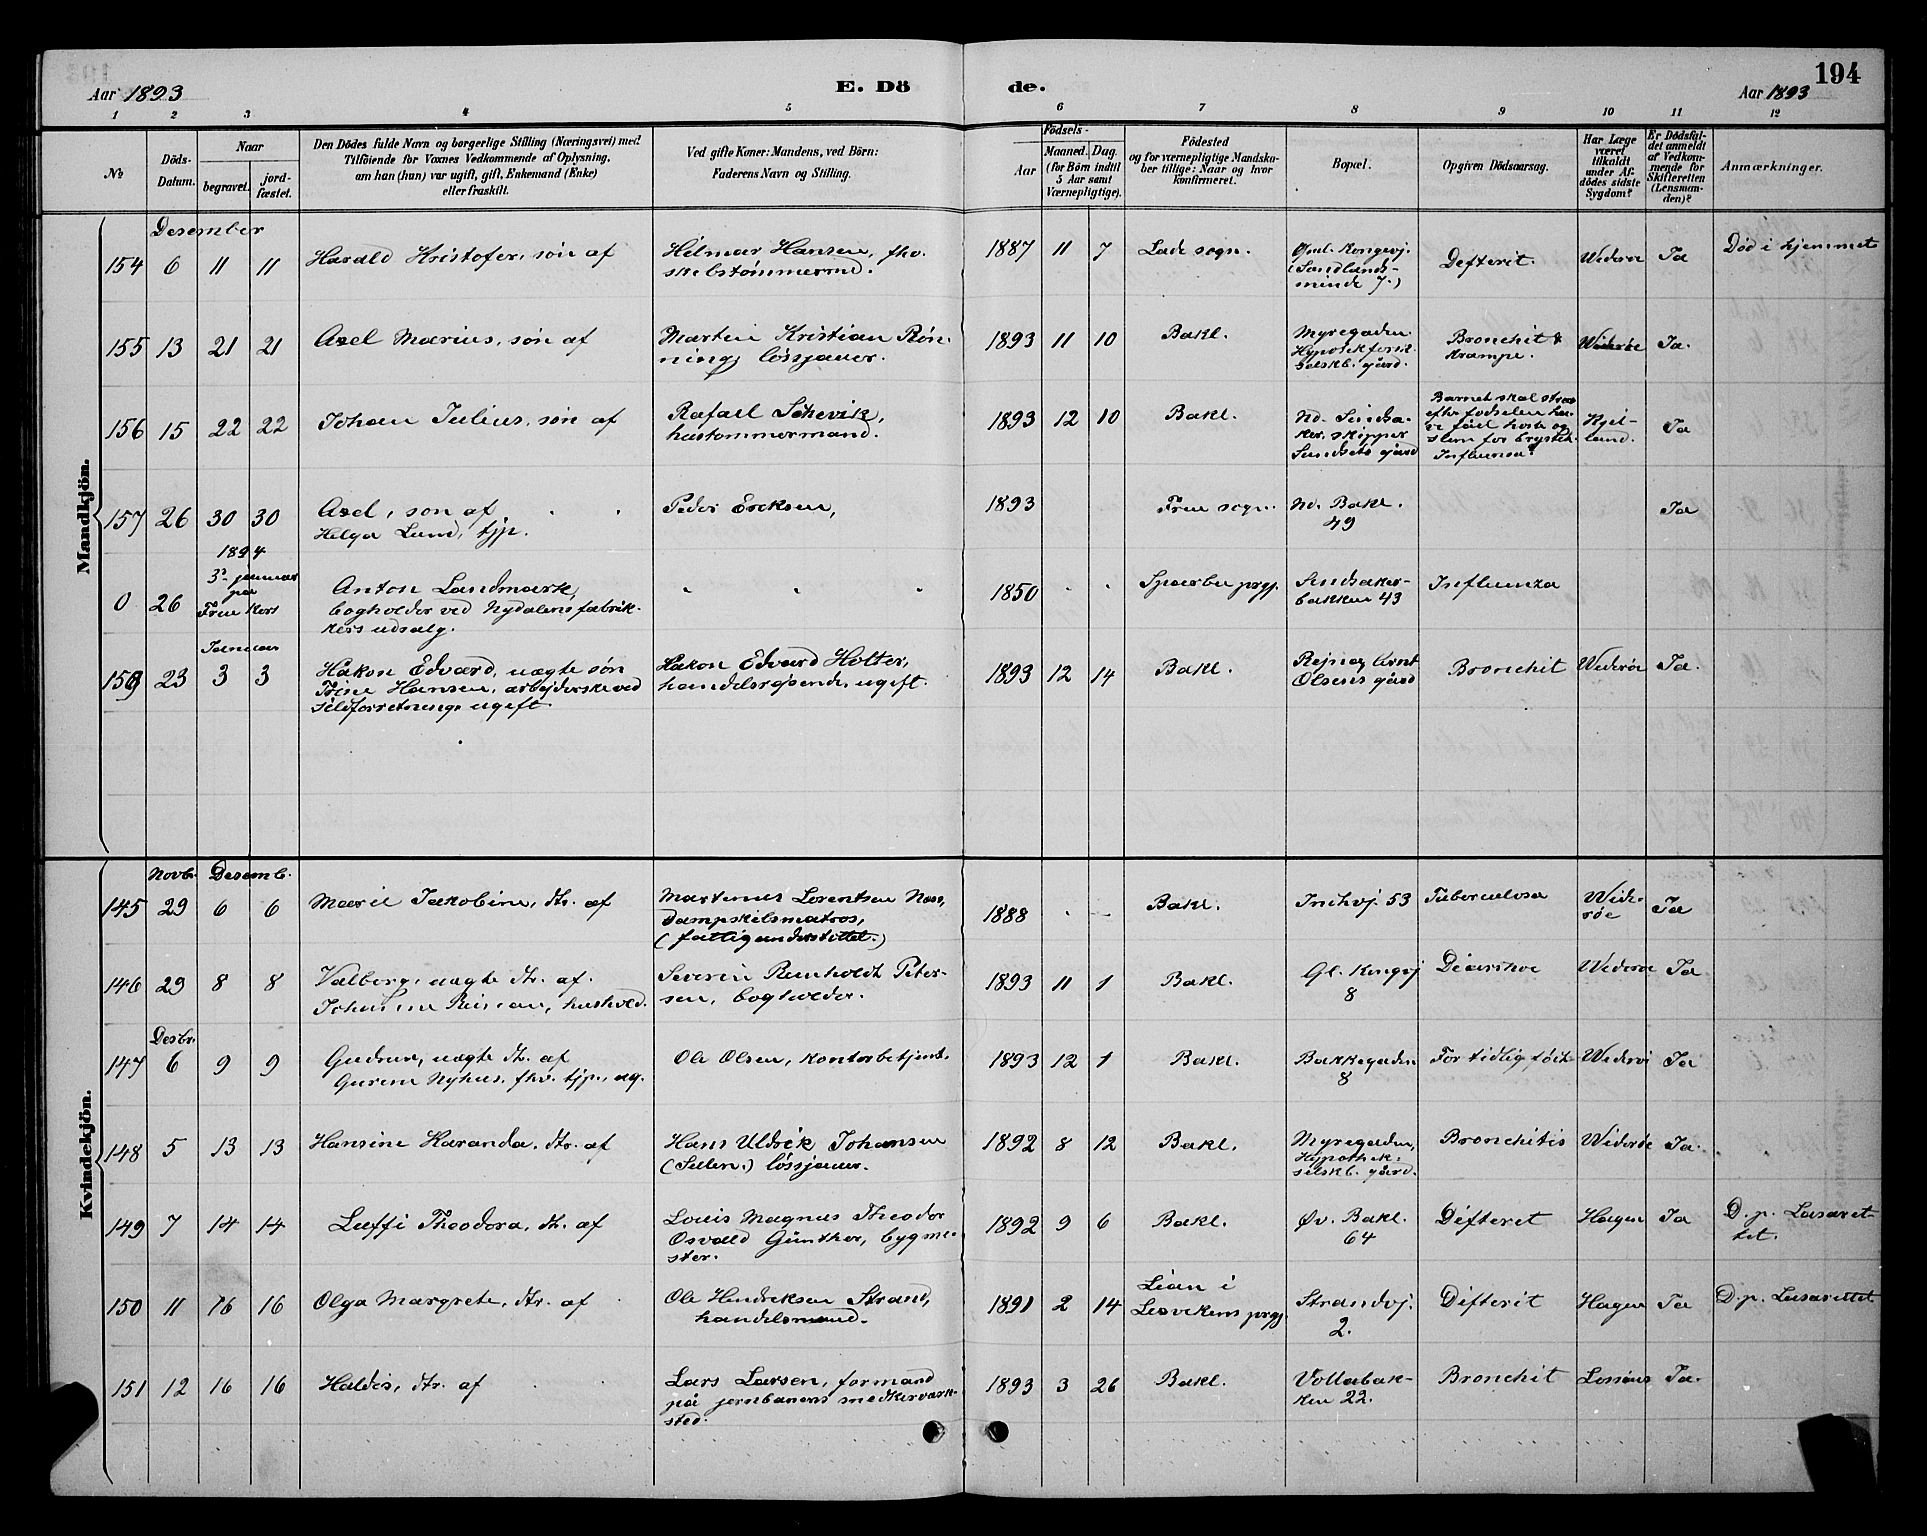 194
Aar 1893
E. Dö
de.
Aar 1893
1 2 3 4 5 6 7 8 9 10 11 12
No
Döds-
Datum.
Naar
begravet.
jord-
fæstet.
Den Dödes fulde Navn og borgerlige Stilling (Næringsvei) med
Tilföiende for Voxnes Vedkommende af Oplysning,
om han (hun) var ugift, gift, Enkemand (Enke)
eller fraskilt.
Ved gifte Koner: Mandens, ved Börn:
Faderens Navn og Stilling.
Födsels-
Aar
Maaned. Dag.
(for Börn indtil
5 Aar samt
Værnepligtige).
Födested
og for værnepligtige Mandska-
ber tillige: Naar og hvor
konfirmeret.
Bopæl.
Opgiven Dödsaarsag.
Har Læge
været
tilkaldt
under Af-
dödes sidste
Sygdom?
Er Dödsfal-
det anmeldt
af Vedkom-
mende for
Skifteretten
(Lensman-
den)?
Anmærkninger.
Mandkjön.
Desember
154 6 11 11 Harald Kristofer, søn af
Hilmar Hansen, fhv.
skibstømmermd.
1887 11 7 Lade sogn.
Kongevj.
(Sandlands-
minde 7.)
Defterit. Widerøe Ja Død i hjemmet
155 13 21 21 Axel Marius, søn af
Martin Kristian Røn-
ning, løssjauer.
1893 11 10 Bakl.
Myregaden
selskb. gård.
Bronchit &
Krampe.
Widerøe Ja.
156 15 22 22 Johan Julius, søn af
Rafael Schevik,
hustømmermand.
1893 12 10 Bakl.
Nd. Sindsa-
ker, skipper
Sundsets gård
Barnet skal strax
efter fødselen ha-
ve fået hoste og
slem for brystet.
Influensa?
Kjel-
land.
Ja
157 26 30 30 Axel, søn af
Helga Lund, tjp.
Peder Ericksen,
1893 Frue sogn. Nd. Bakl.
49
Ja
1894
3. januar
på
Frue Kors
0 26 Anton Landmark,
bogholder ved Nydalens fabrik-
kers udsalg.
" " "
1850 " " Sparbu prgj. Sindsaker-
bakken 43
Influenza
Januar
158 23 3 3 Håkon Edvard, uægte søn
Trine Hansen, arbejderske ved
sildforretning, ugift.
Håkon Edvard Holter,
handelsrejsende, ugift.
1893 12 14 Bakl.
Olsens gård
Bronchit Widerøe Ja.
Kvindekjön.
Novbr. Desemb.
145 29 6 6 Marie Jakobine, dtr. af
Martinus Lorentsen Næss,
Dampskibsmatros,
(fattigunderstøttet.)
1888 - - Bakl. Innhvj. 53 Tuberculosa Wide-
røe
Ja
146 29 8 8 Valborg, uægte dtr. af
hushold.
Severin Reinholdt Peter-
sen, bogholder.
1893 11 1 Bakl. Gl. Kongvj
8
Diarrhoe Widerøe Ja
Desbr.
147 6 9 9 Gudrun, uægte dt. af
Gurine Nyhus, fhv. tjp., ug.
Ole Olsen, kontorbetjent.
1893 12 1 Bakl. Bakkegaden
8
For tidlig født Widerøe Ja
148 5 13 13 Hansine Karanda, dtr. af
Hans Uldrik Johansen
løssjauer.
1892 8 12 Bakl. Myregaden,
Hypothek-
selskb. gård.
Bronchitis Widerøe Ja.
149 7 14 14 Luffi Theodora, dt. af
Louis Magnus Theodor
Osvald Günther, bygme-
ster.
1892 9 6 Bakl. Øv. Bakl.
64
Difterit Hagen Ja D. p. Lasaret-
tet.
150 11 16 16 Olga Margrete, dtr. af
Ole Hendriksen Strand,
handelsmand.
1891 2 14 Lian i
Lesvikens prgj.
Strandvj.
2.
Difterit Hagen Ja D. p. Lasarettet
151 12 16 16 Haldis, dtr. af
Lars Larsen, formand
på jernbanens snedkerverk-
sted.
1893 3 26 Bakl. Vollabak-
ken 22.
Bronchit Lossius Ja.